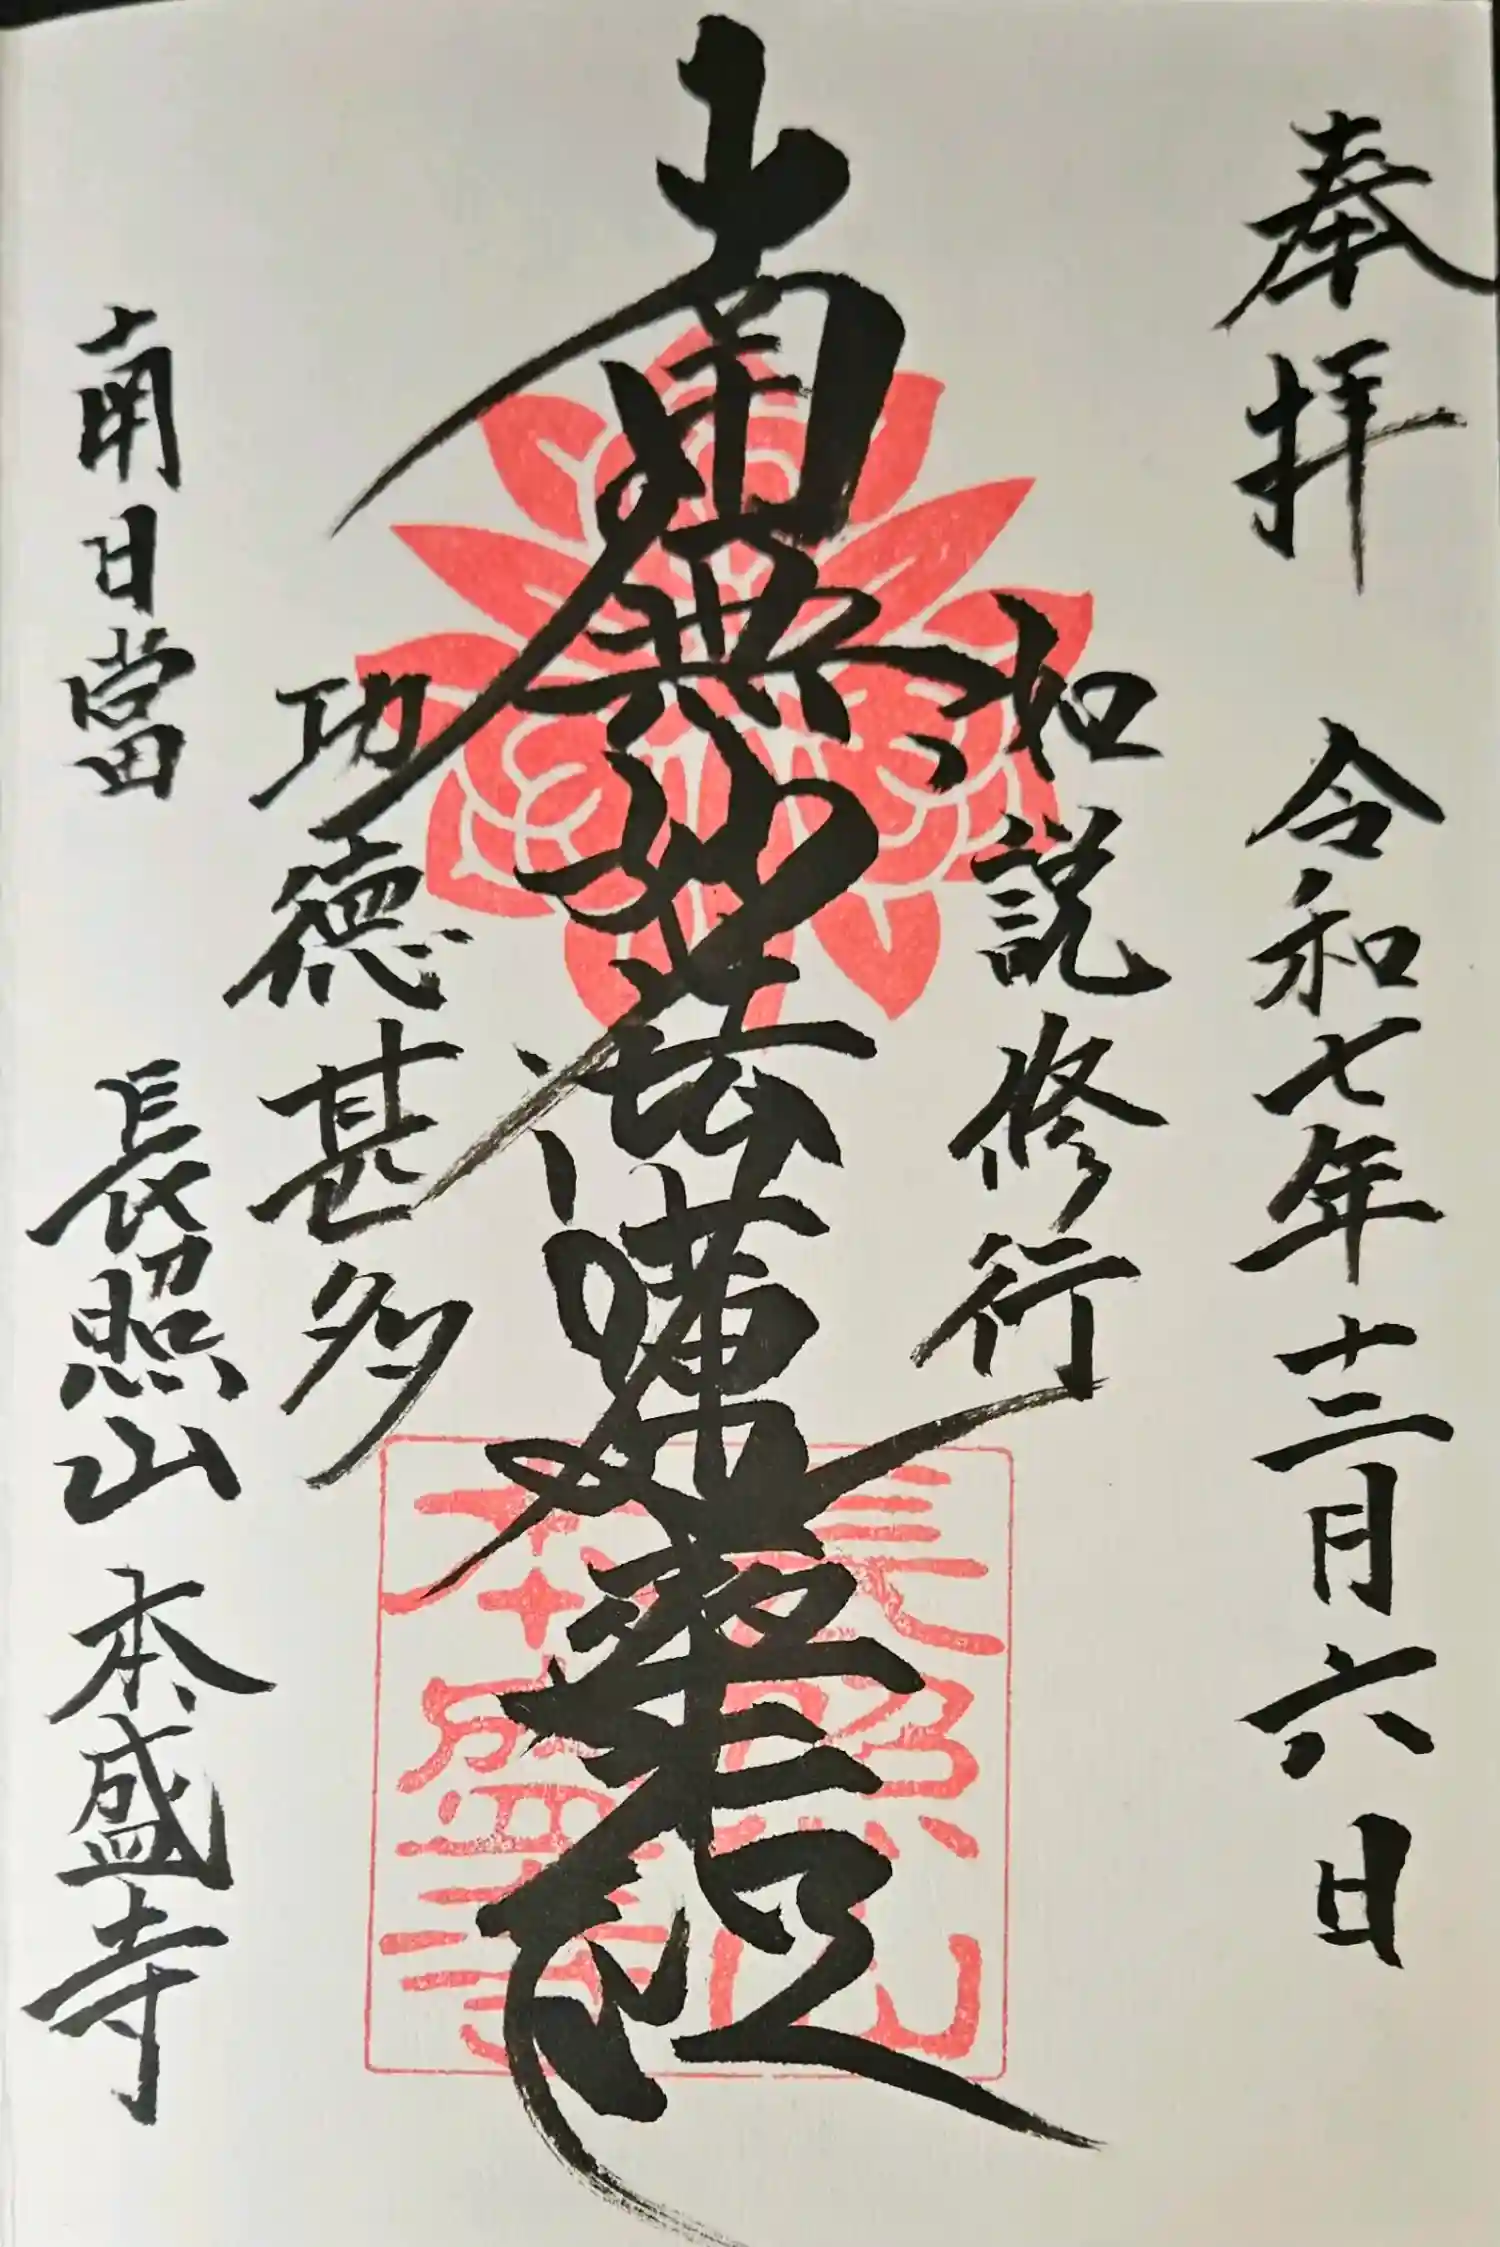 奉拝 令和七年十二月六日
如説修行
南無妙法蓮華経
功徳甚多
南日當 長照山 本盛寺
長照山
本盛寺